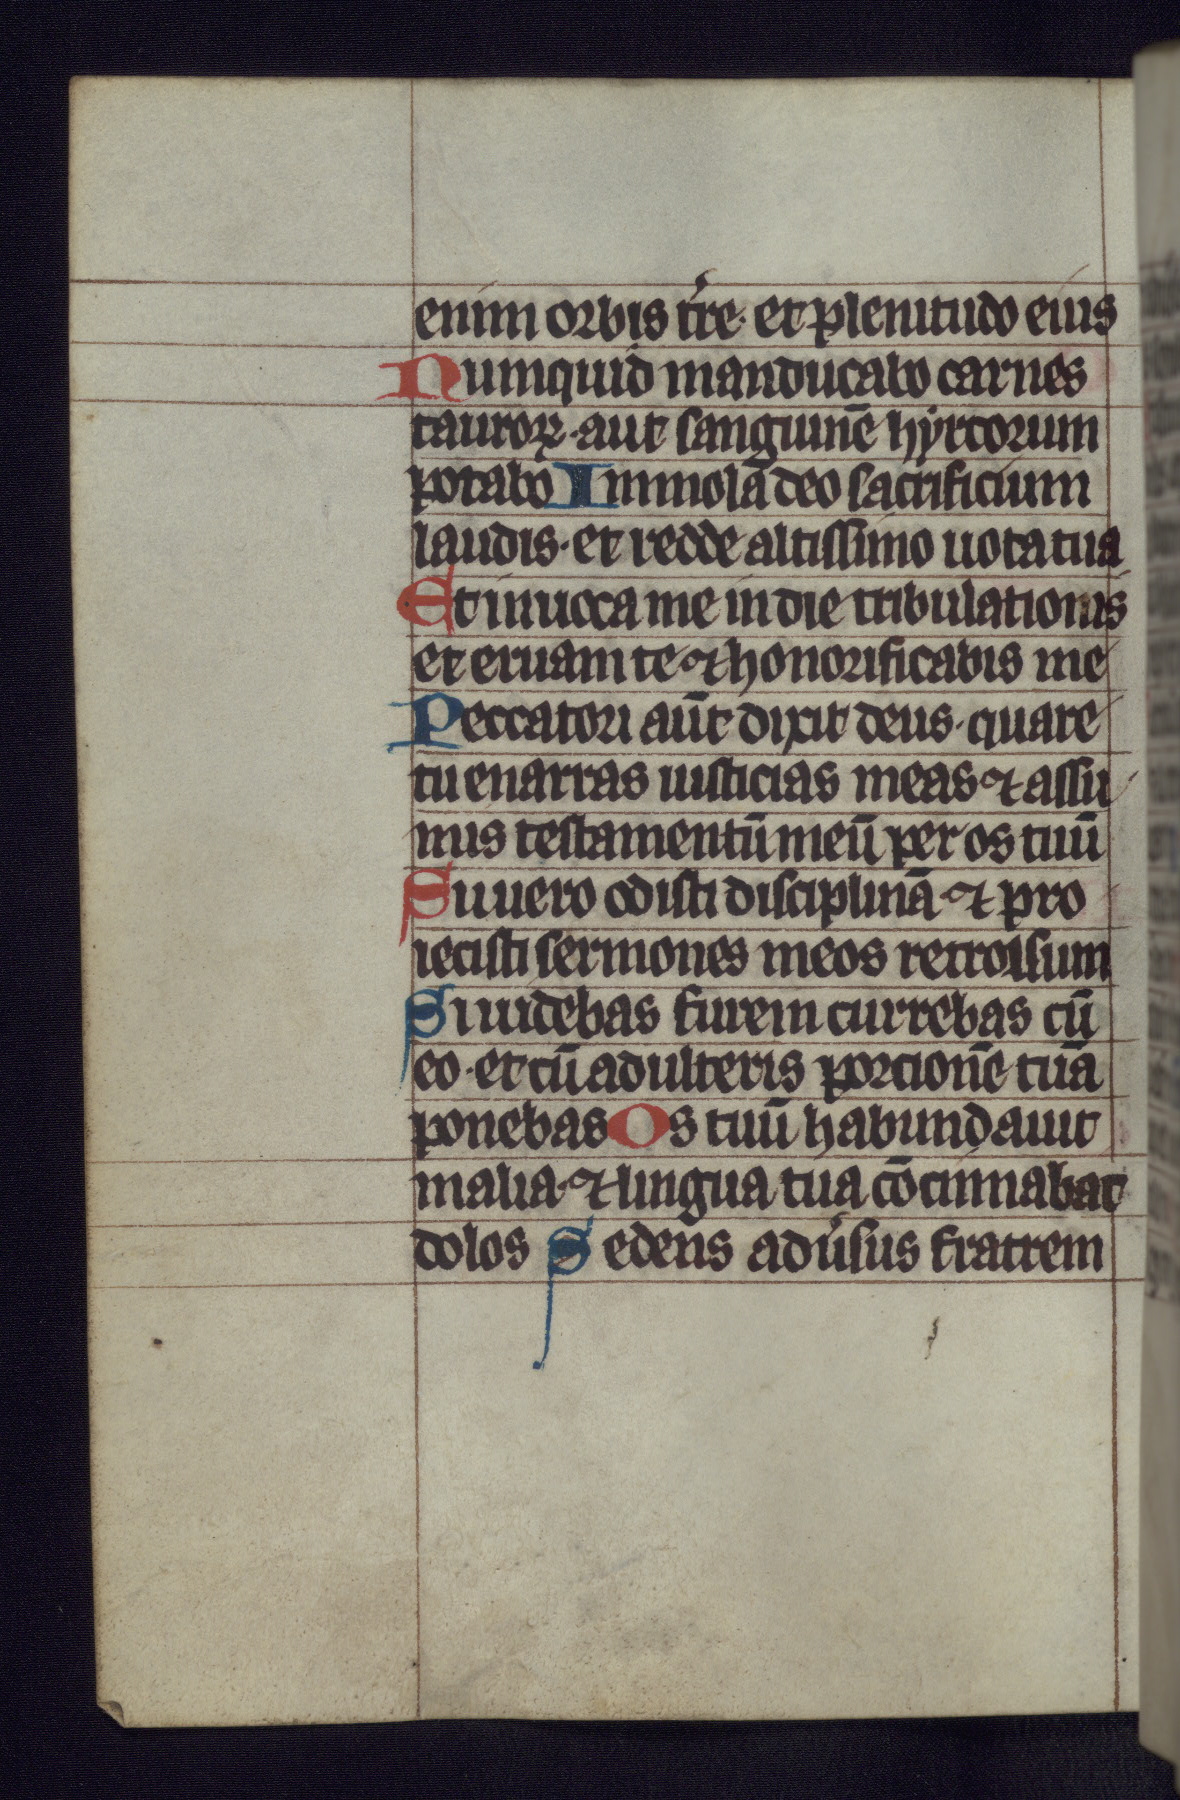 enim orbis tr̄e· et plenitudo eius
Numquid manducabo carnes
tauroꝝ· aut sanguinē hyrcorum
potabo Immola deo sacrificium
laudis· et redde altissimo uota tua
Et inuoca me in die tribulationis
et eruam te· ⁊ honorificabis me
Peccatori aūt dixit deus· quare
tu enarras iusticias meas· ⁊ assu
mis testamentū meū per os tuū
Si uero odisti disciplinā· ⁊ pro
iecisti sermones meos retrorsum
Si uidebas furem currebas cū
eo· et cū adulteris porcionē tuā
ponebas Os tuū habundauit
malia· ⁊ lingua tua cōcinnabat
dolos Sedens adu͛sus fratrem